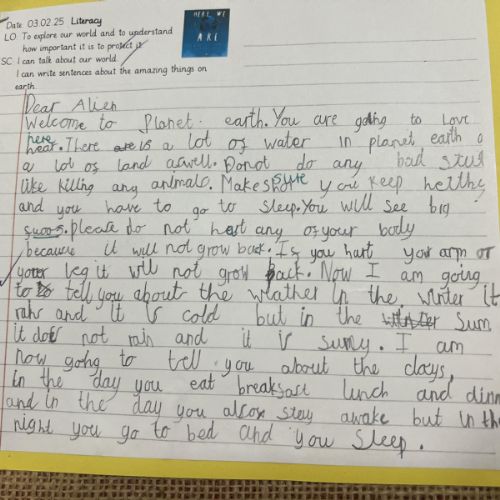 Date 03.02.25 Literacy
LO To explore our world and to understand
how important it is to protect it
SC I can talk about our world
I can write sentences about the amazing things on
earth
HERE WE
ARE
Dear Alien
Welcome to Planet. earth. You are going to Love
here
hear. There are is a lot of water in planet earth
a lot of land aswell. Donot do any bad stuf
sure
like killing any animals. Make shor you keep helthy
and you have to go to sleep. You will see big
please do not hert any of your body
because it will not grow back. If you hurt your arm or
your leg it will not grow back. Now I am going
to tell you about the weather In the winter it
rain and it is cold but in the winter Sum
it does not rain and it is suny. I am
now going to tell you about the days,
in the day you eat breakfast lunch and dinn
and In the day you alsow stay awake but in th
night you go to bed and you sleep.